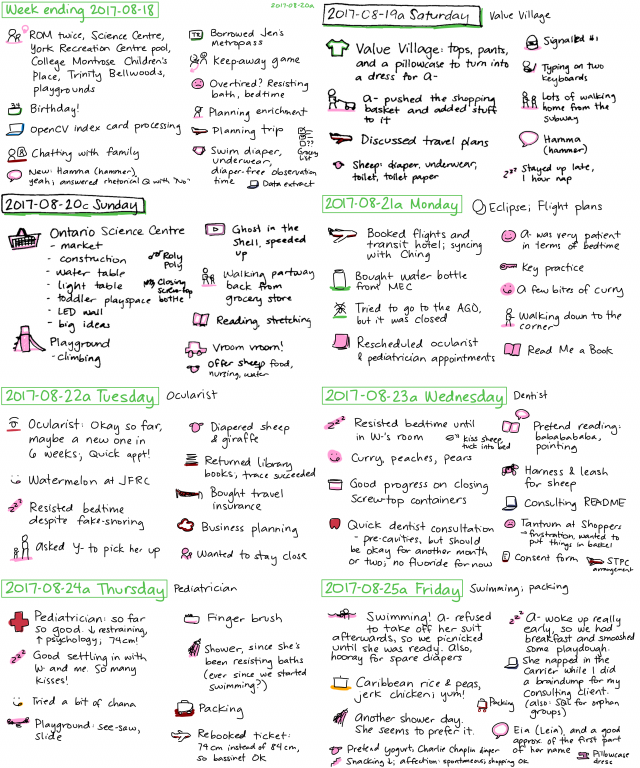 Week ending 2017-08-18
2017-08-20a
ROM twice, Science Centre,
York Recreation Centre pool,
College Montrose Children's
Place, Trinity Bellwoods,
playgrounds
Birthday!
OpenCV index card processing
Chatting with family
New: Hamma (hammer),
yeah; answered rhetorical Q with "No"
Borrowed Jen's
metropass
Keepaway game
Overtired? Resisting
bath, bedtime
Planning enrichment
Planning trip
Grocery
list
Swim diaper,
underwear,
diaper-free observation
time
Data extract
2017-08-19a Saturday
Value Village
Value Village: tops, pants,
and a pillowcase to turn into
a dress for A-
A- pushed the shopping
basket and added stuff
to it
Discussed travel plans
Sheep: diaper, underwear,
toilet, toilet paper
Signalled #1
Typing on two
keyboards
Lots of walking
home from the
subway
Hamma
(hammer)
Stayed up late,
1 hour nap
2017-08-20c Sunday
Ontario Science Centre
- market
- construction
- water table
- light table
- toddler playspace
- LED wall
- big ideas
Roly
Poly
Closing
screw-top
bottle
Playground
- climbing
Ghost in the
Shell, speeded
up
Walking partway
back from
grocery store
Reading, stretching
Vroom vroom!
Offer sheep food,
nursing, water
2017-08-21a Monday
Eclipse; Flight plans
Booked flights and
transit hotel; syncing
with Ching
Bought water bottle
from MEC
Tried to go to the AGO,
but it was closed
Rescheduled ocularist
& pediatrician appointments
A- was very patient
in terms of bedtime
Key practice
A few bites of curry
Walking down to the
corner
Read Me a Book
2017-08-22a Tuesday
Ocularist
Ocularist: Okay so far,
maybe a new one in
6 weeks; Quick appt!
Watermelon at JFRC
Resisted bedtime
despite fake-snoring
Asked Y- to pick her up
Diapered sheep
& giraffe
Returned library
books, trace succeeded
Bought travel
insurance
Business planning
Wanted to stay close
2017-08-23a Wednesday
Dentist
Resisted bedtime until
in W-'s room
kiss sheep,
tuck into bed
Curry, peaches, pears
Good progress on closing
screw-top containers
Quick dentist consultation
- pre-cavities, but should
be okay for another month
or two; no fluoride for now
Pretend reading:
bababababa,
pointing
Harness & leash
for sheep
Consulting README
Tantrum at Shoppers
→ frustration, wanted to
put things in basket
Consent form
STPC
arrangement
2017-08-24a Thursday
Pediatrician
Pediatrician: so far
so good. ↓ restraining,
↑ psychology; 74cm!
Good settling in with
W- and me. So many
kisses!
Tried a bit of chana
Playground: see-saw,
slide
Finger brush
Shower, since she's
been resisting baths
(ever since we started
swimming?)
Packing
Rebooked ticket:
74cm instead of 84cm,
so bassinet OK
2017-08-25a Friday
Swimming; packing
Swimming! A- refused
to take off her suit
afterwards, so we picnicked
until she was ready. Also,
hooray for spare diapers
Caribbean rice & peas,
jerk chicken; yum!
Another shower day.
She seems to prefer it.
Packing
Pretend yogurt, Charlie Chaplin diaper
Snacking ↓; affection: spontaneous; shopping OK
A- woke up really
early, so we had
breakfast and smooshed
some playdough.
She napped in the
carrier while I did
a braindump for my
consulting client.
(also: SQL for orphan
groups)
Eia (Leia), and a good
approx of the first part
of her name
Pillowcase
dress